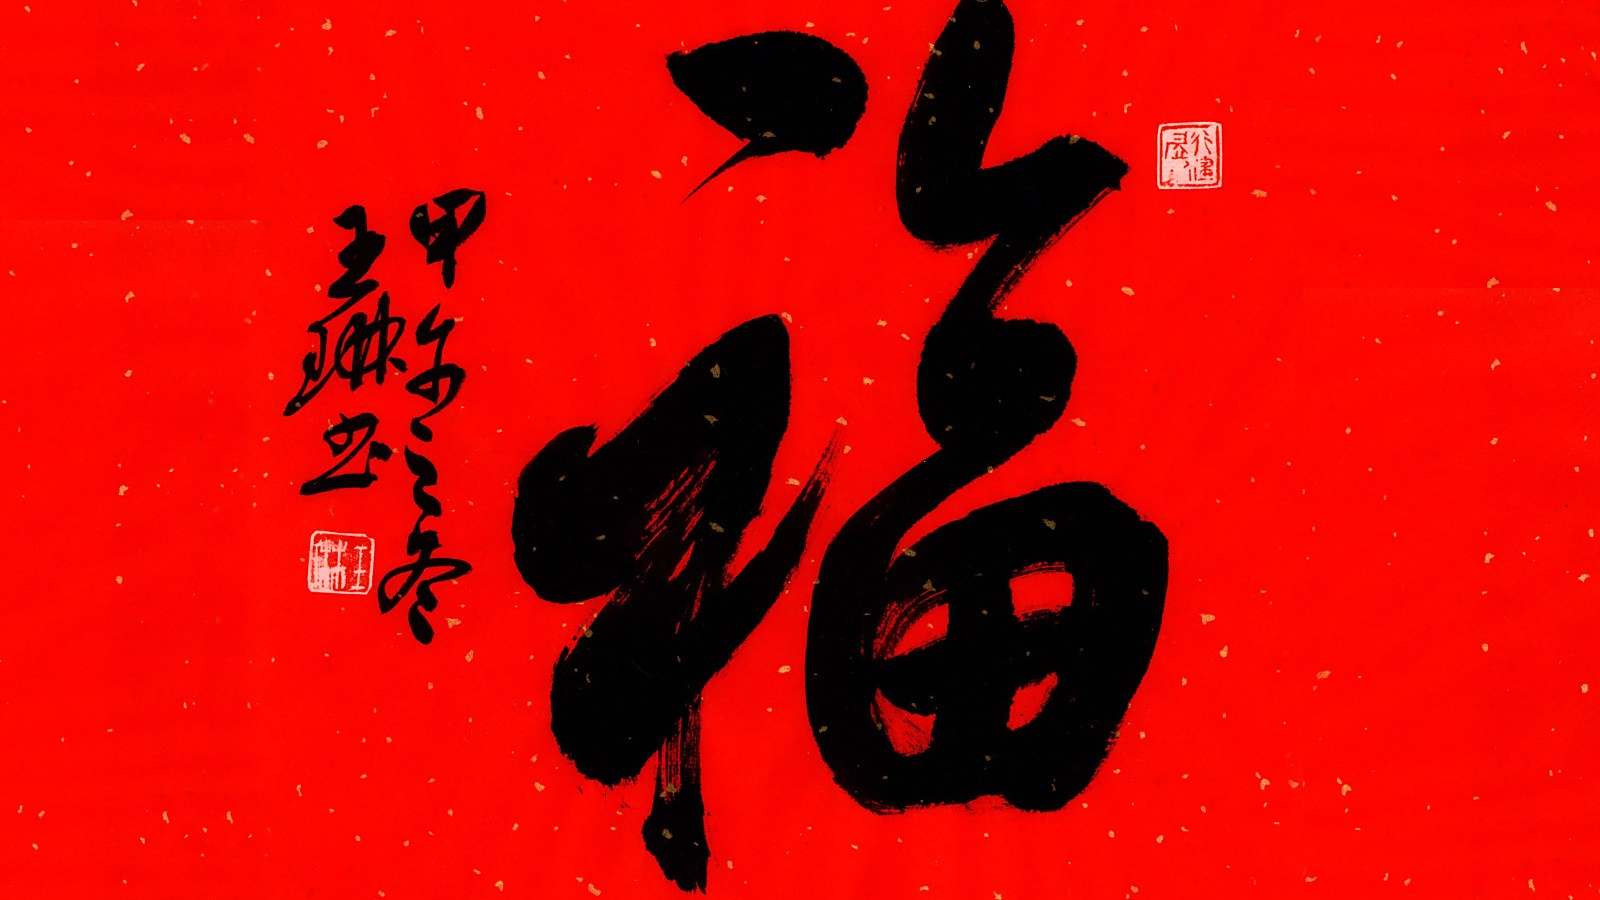 福
甲午之冬
王琳书